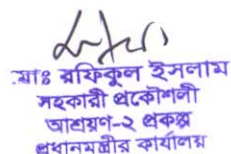 মোঃ রফিকুল ইসলাম
সহকারী প্রকৌশলী
আশ্রয়ণ-২ প্রকল্প
প্রধানমন্ত্রীর কার্যালয়